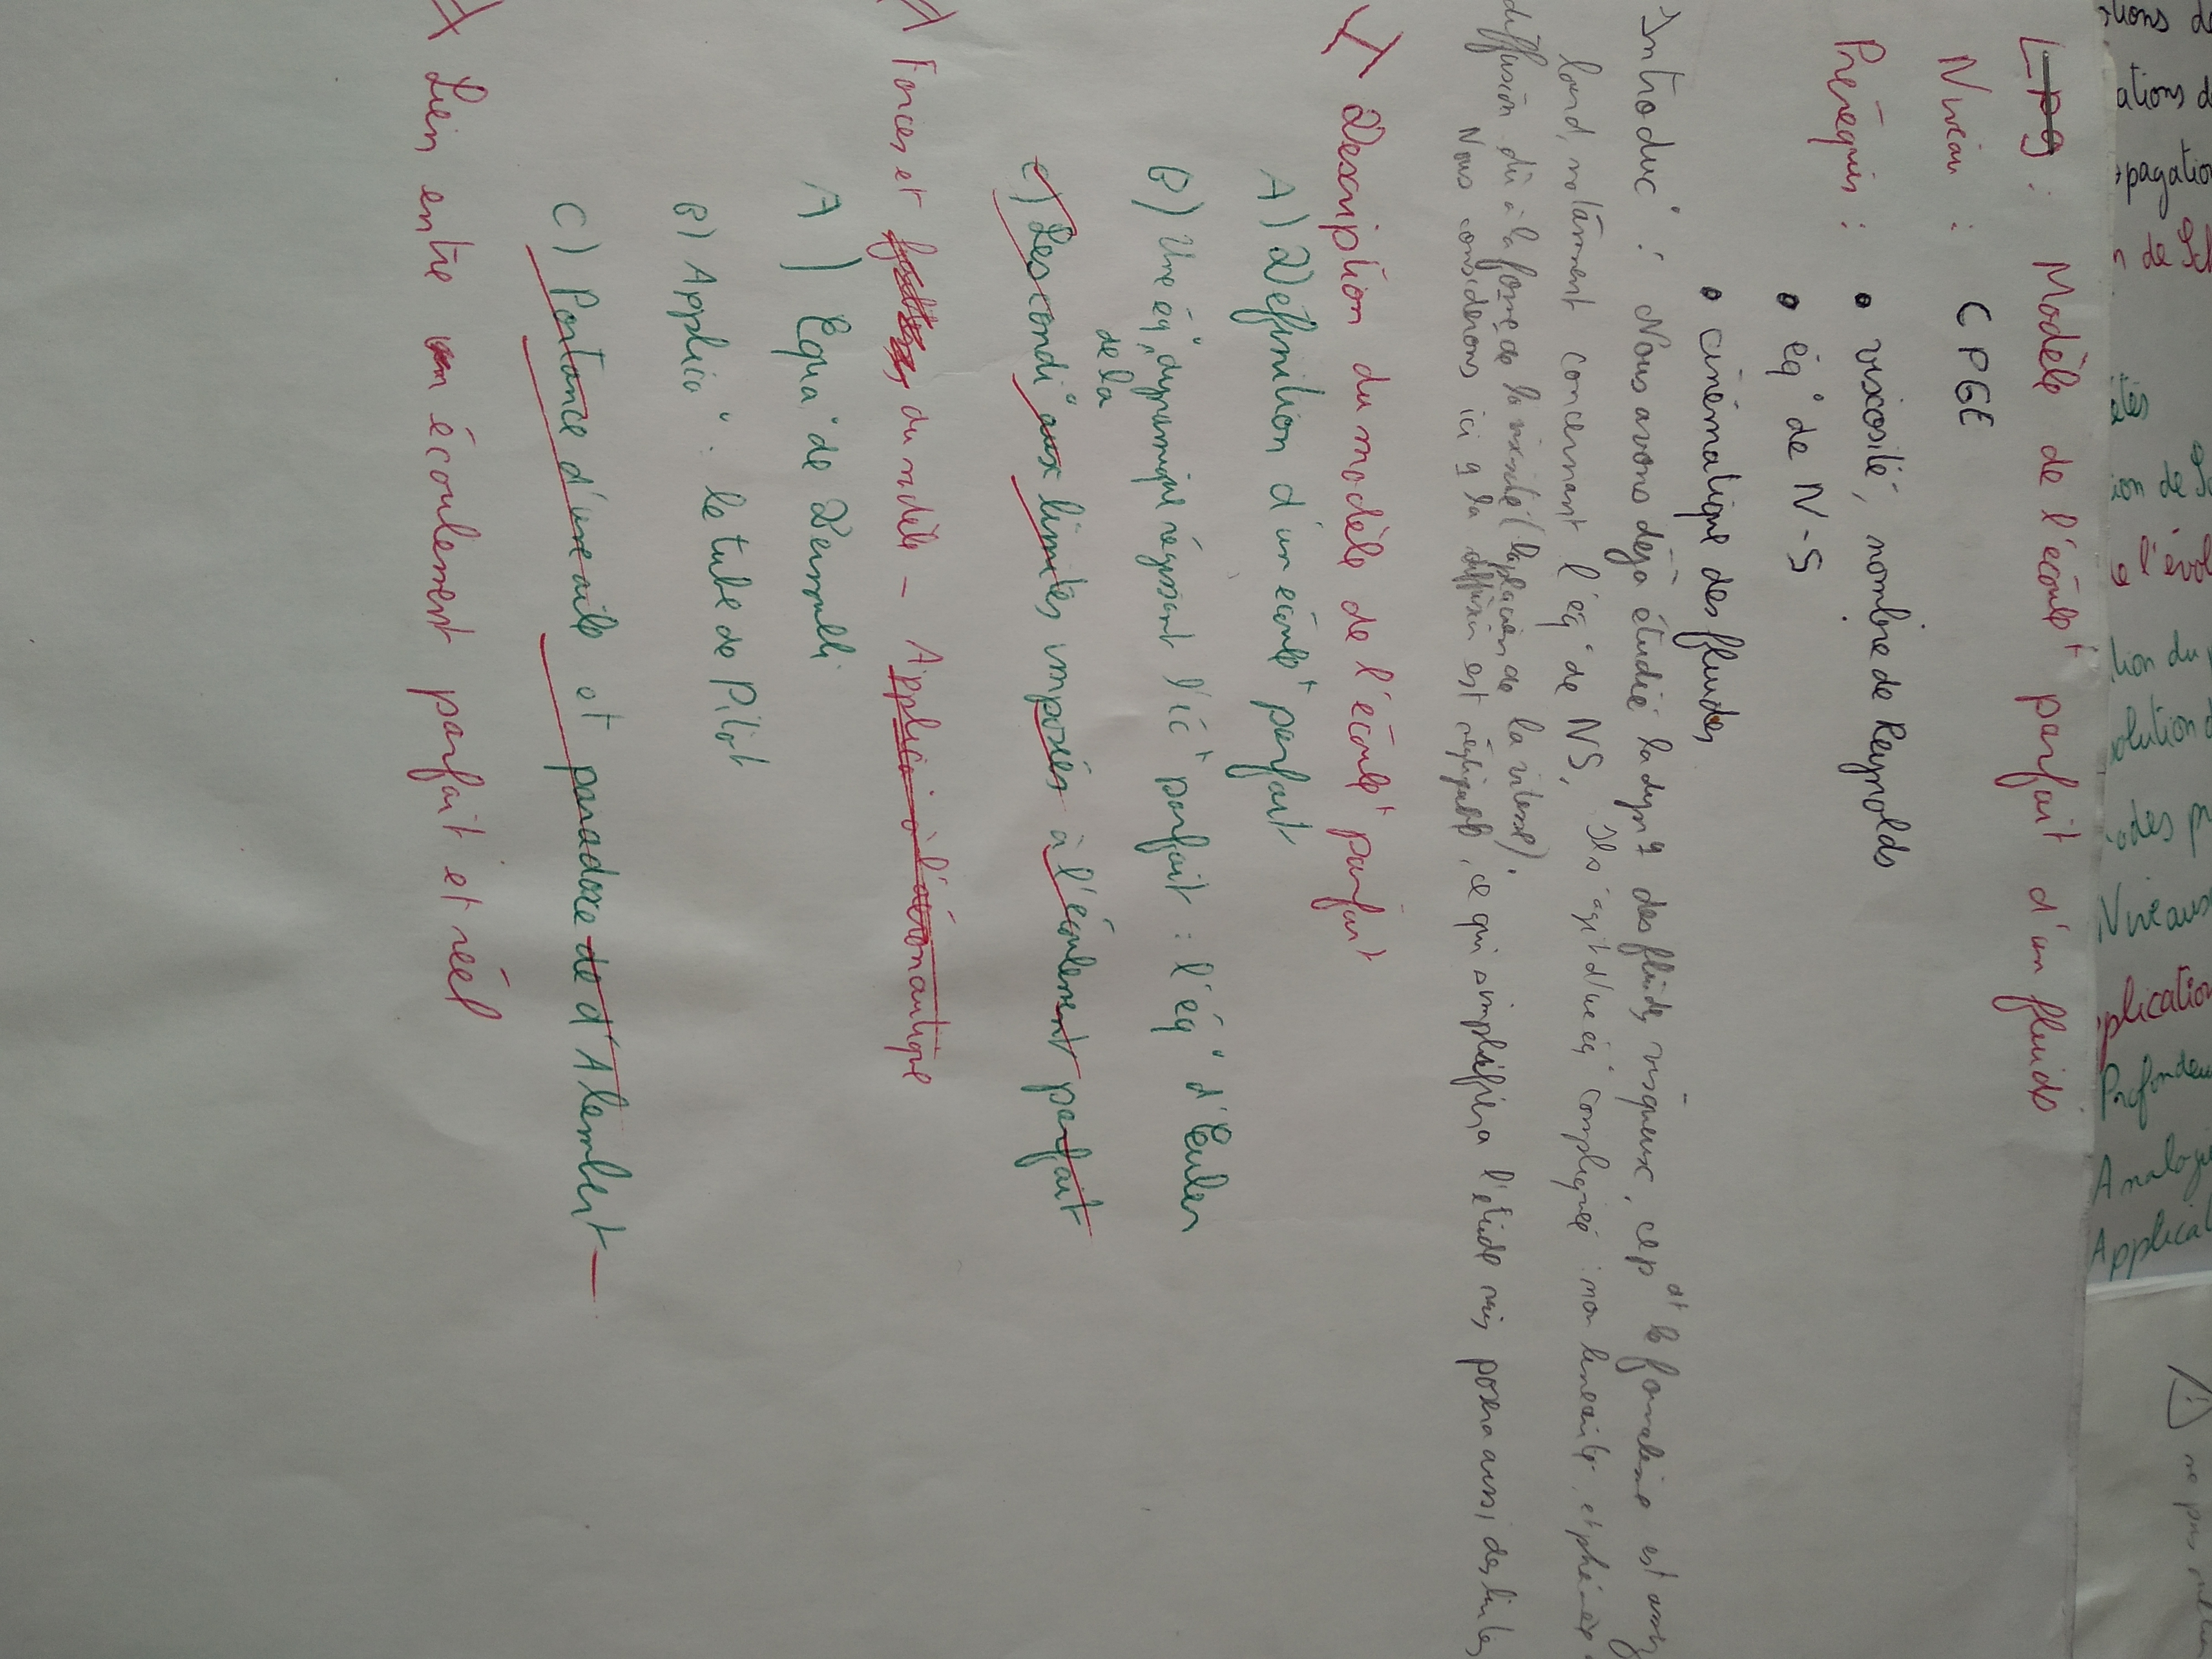 LP9 : Modèle de l'écoult parfait d'un fluide
Niveau : CPGE
Prérequis : • viscosité, nombre de Reynolds
• éq° de N-S
• cinématique des fluides
Introduc° : Nous avons déjà étudié la dynq des fluides visqueux, cepdt le formalisme est assez
lourd, notamment concernant l'éq° de NS, Il s'agit d'une éq° compliquée : non linéaire, et phénomène
diffusion dû à la force de la viscosité (laplacien de la vitesse).
Nous considérons ici q la diffusion est négligeable, ce qui simplifiera l'étude mais posera aussi des limites
I Description du modèle de l'écoult parfait
A) Définition d'un écoult parfait
B) Une éq° dynamique régissant l'éct parfait : l'éq° d'Euler
de la
C) Les condi° aux limites imposés à l'écoulement parfait
Forces et du modèle - Applica° à l'aéronautique
A) Equa° de Bernoulli
B) Applica° : le tube de Pitot
C) Portance d'une aile et paradoxe de d'Alembert
Lien entre un écoulement parfait et réel
tions de
ations d
opagation
n de Sch
ion de Sc
l'évol
tion du
olution d
odes pr
Niveaux
plication
Profondeu
Analogie
Applicat
ne pas